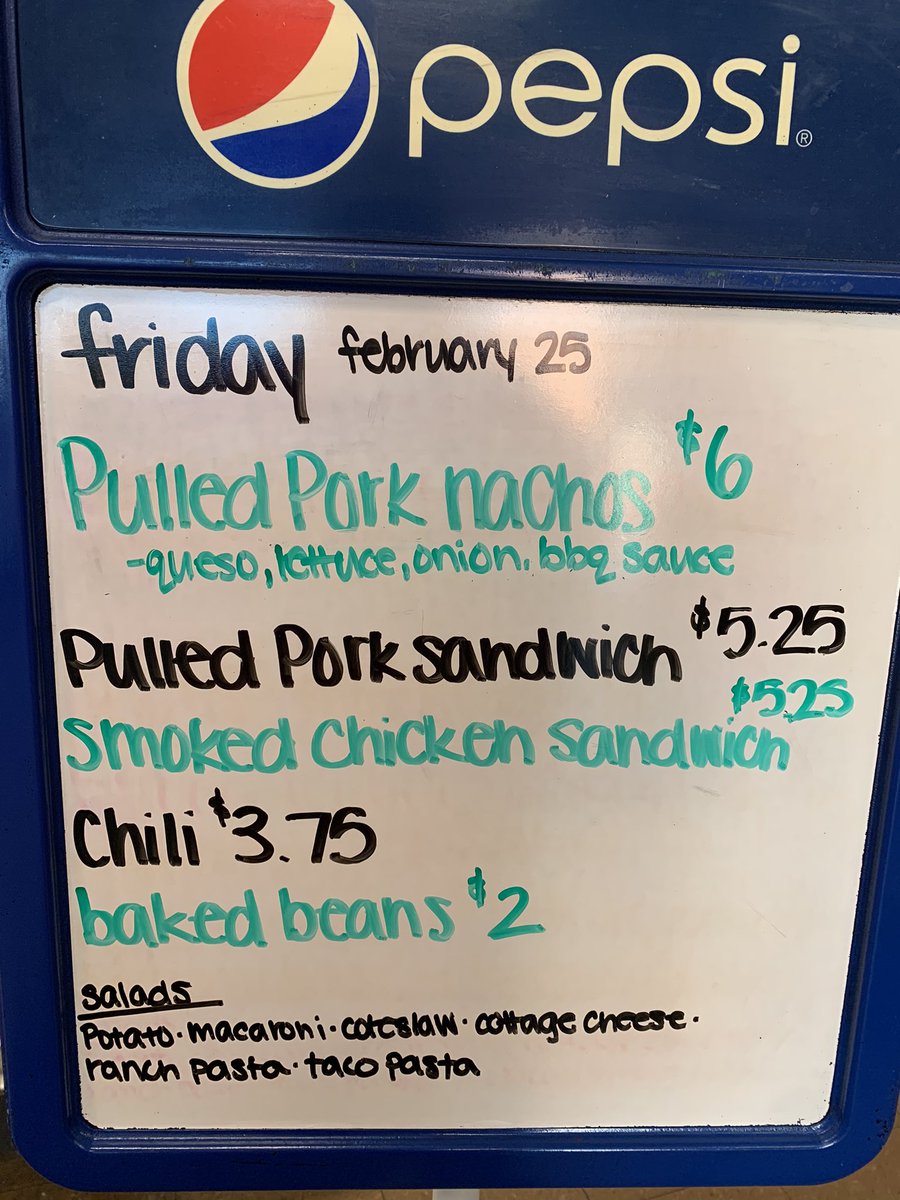 pepsi®
friday february 25
Pulled Pork nachos $6
-queso, lettuce, onion. bbq sauce
Pulled Pork sandwich $5.25
$5.25
smoked chicken sandwich
Chili $3.75
baked beans $2
salads
Potato · macaroni · coleslaw · cottage cheese ·
ranch pasta · taco pasta